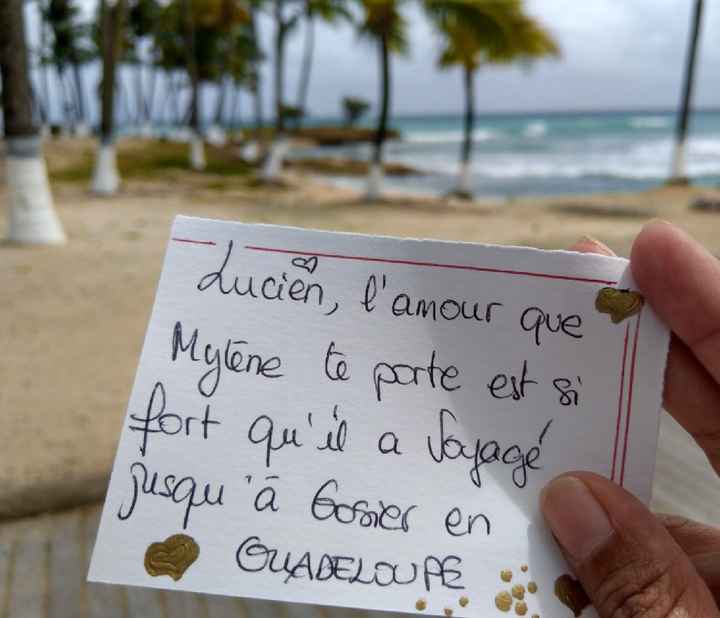 Lucien, l'amour que
Mylène te porte est si
fort qu'il a voyagé
jusqu'à Gosier en
GUADELOUPE